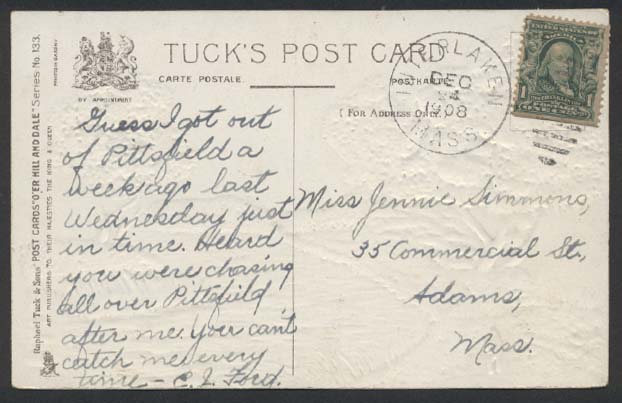 TUCK'S POST CARD
CARTE POSTALE.
POSTKARTE.
BY APPOINTMENT
( FOR ADDRESS ONLY. )
INTERLAKEN
DEC
24
1908
MASS.
1
Raphael Tuck & Sons' POST CARDS "O'ER HILL AND DALE" Series No. 133.
ART PUBLISHERS TO THEIR MAJESTIES THE KING & QUEEN
Guess I got out
of Pittsfield a
week ago last
Wednesday just
in time. Heard
you were chasing
all over Pittsfild
after me. your can't
catch me every
time – C. I. Ford.
Miss Jennie Simmons,
35 Commercial St.,
Adams,
Mass.